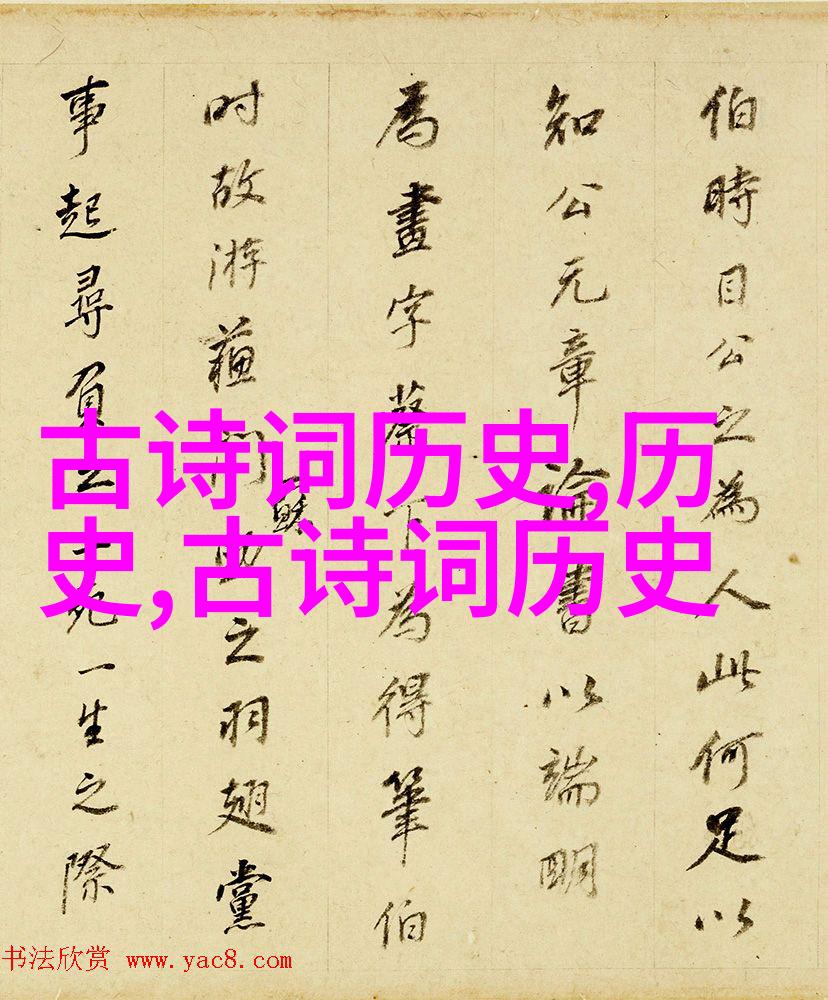 伯時目公之為人此何足以
知公元章論書以端明
為畫字蔡卞為得筆伯
时故游蘓門助之羽翅黨
事起尋負之一死一生之際
古诗词历史,历
史,古诗词历史
书法欣赏 www.yac8.com